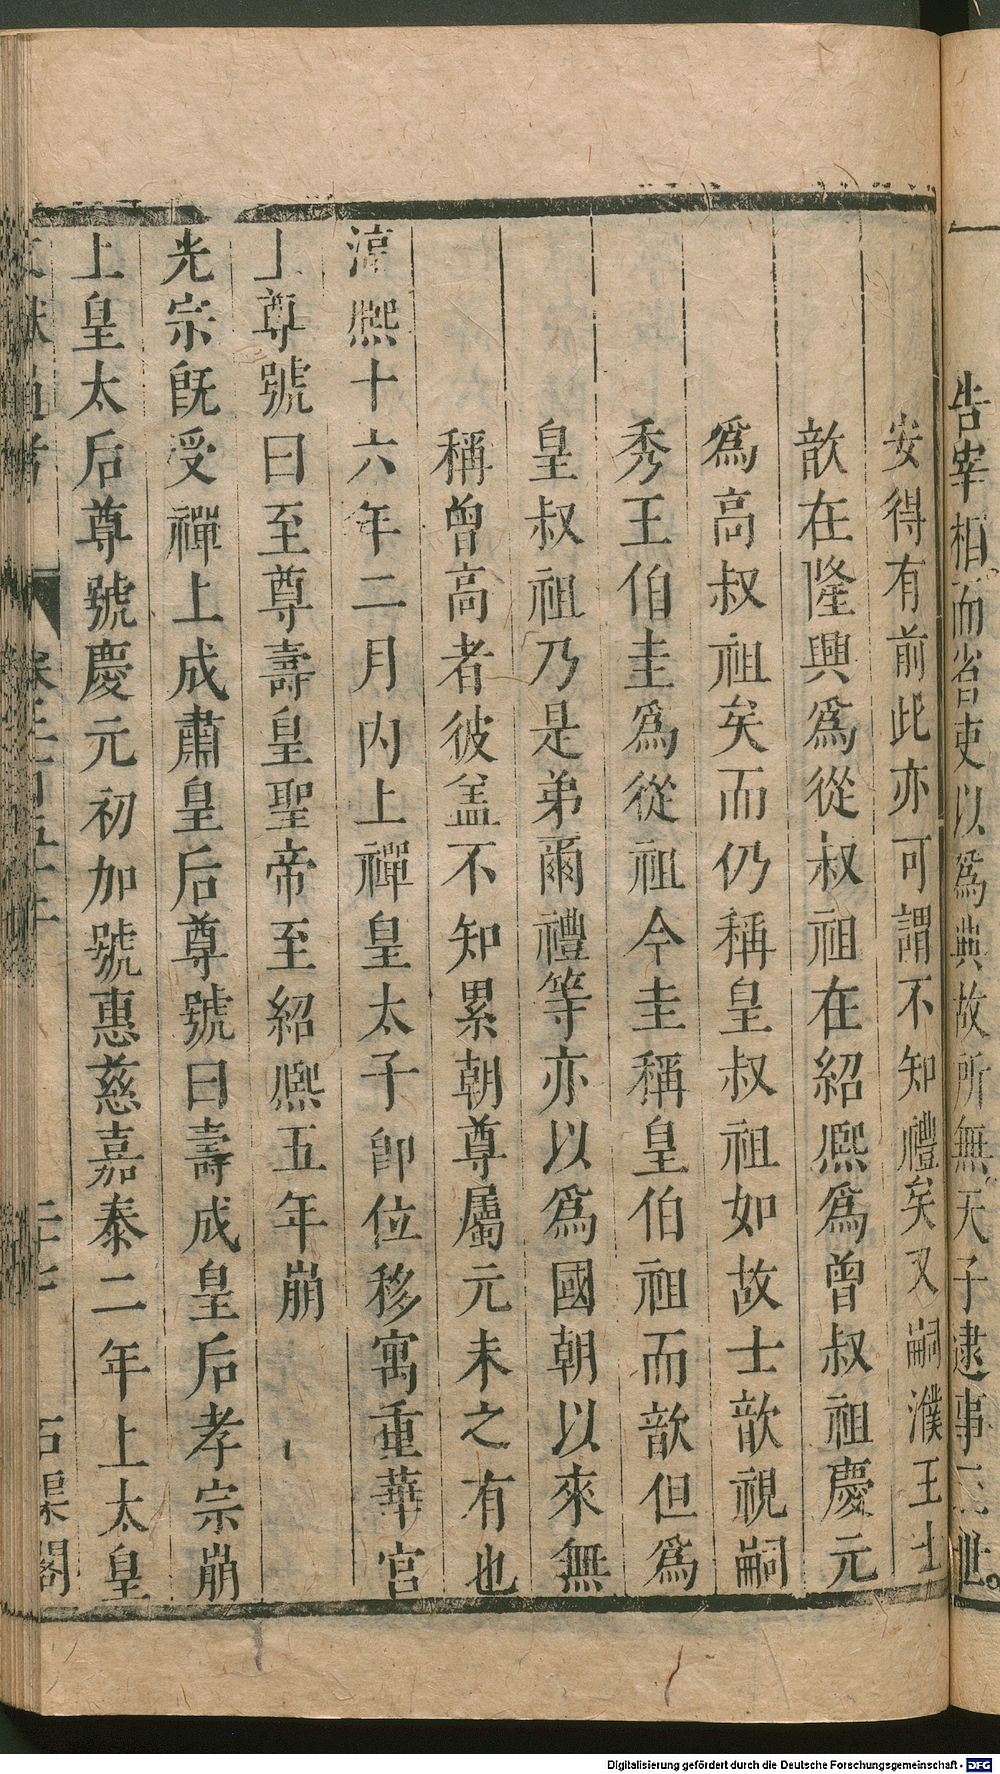 告宰相而省吏以爲典故所無天子逮事三世
安得有前此亦可謂不知禮矣又嗣濮王士
歆在隆興爲從叔祖在紹熙爲曾叔祖慶元
爲高叔祖矣而仍稱皇叔祖如故士歆視嗣
秀王伯圭爲從祖今圭稱皇伯祖而歆但爲
皇叔祖乃是弟爾禮等亦以爲國朝以來無
稱曾高者彼盖不知累朝尊屬元未之有也
淳熙十六年二月内上禪皇太子卽位移寓重華宮
上尊號曰至尊壽皇聖帝至紹熙五年崩
光宗旣受禪上成肅皇后尊號曰壽成皇后孝宗崩
上皇太后尊號慶元初加號惠慈嘉泰二年上太皇
文獻通考
石渠閣
Digitalisierung gefördert durch die Deutsche Forschungsgemeinschaft - DFG